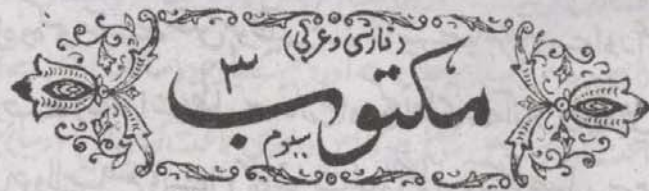 (فارسی و عربی)
مکتوب ۳
سوم